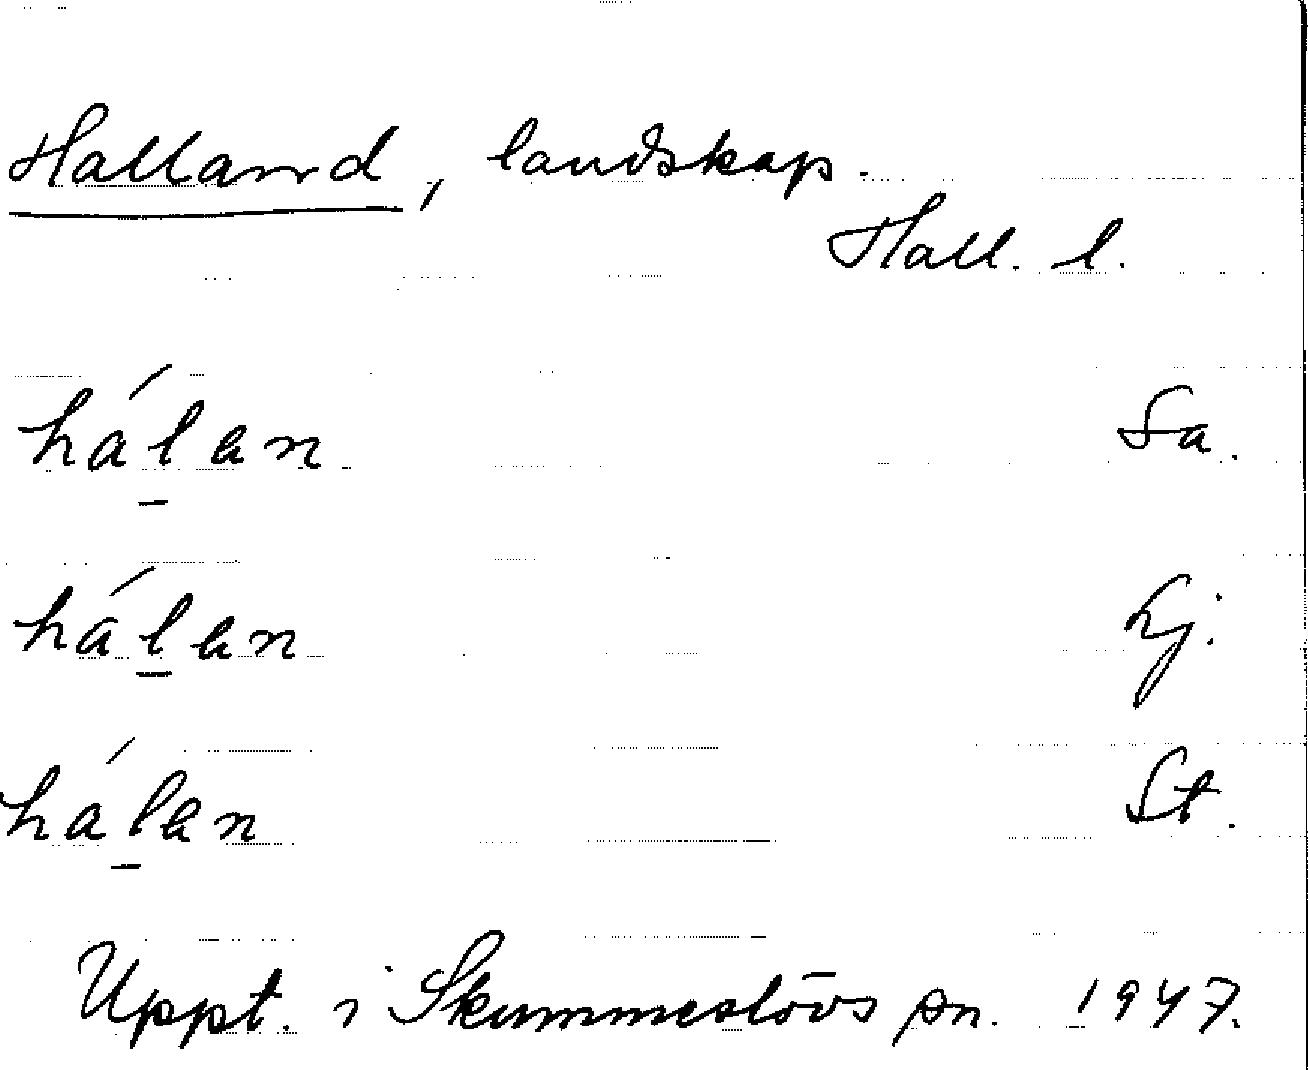 Halland, landskap.
Hall. l.
hál̲an Sa.
hál̲an Lj.
hál̲an St.
Uppt. i Skummeslövs sn. 1947.